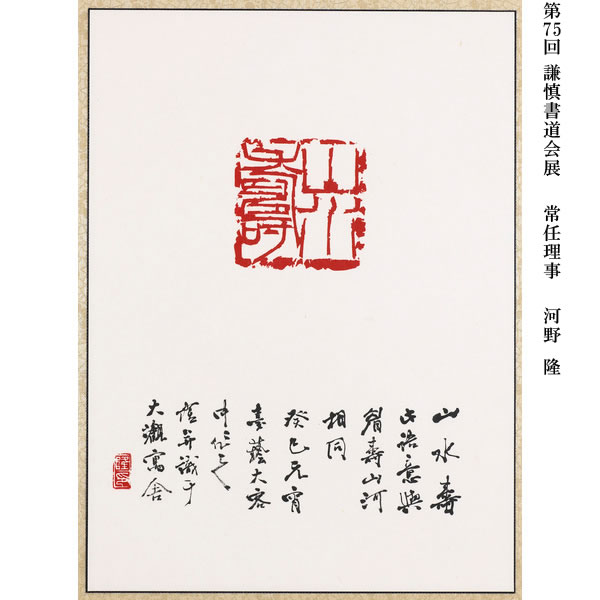 第75回 謙慎書道会展 常任理事 河野 隆
山水壽
山水壽
此語意與
眉壽山河
相同
癸巳元宵
藝大
中
并識于
大 寓舍